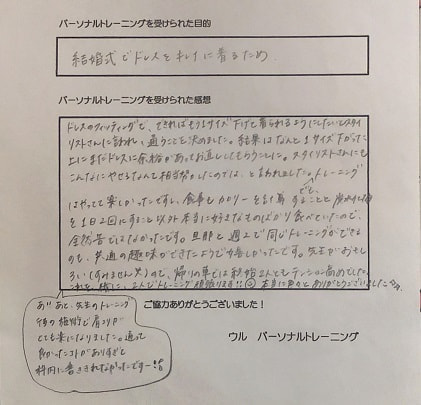 パーソナルトレーニングを受けられた目的
結婚式でドレスをキレイに着るため
パーソナルトレーニングを受けられた感想
ドレスのフィッティングで、できればもう1サイズ下げて着られるようにしたいとスタイ
リストさんに言われ、通うことを決めました。結果はなんと1サイズ下がった
上にまだドレスに余裕があってお直ししてもらうことに。スタイリストさんにも
こんなにやせるなんて相当がんばったのでは、と言われました。トレーニング
はやってて楽しかったですし、食事もカロリーを計算することと
を1日2回にすること以外本当に好きなものばかり食べていたので、
全然苦ではなかったです。旦那と週2で同じトレーニングができる
のも、共通の趣味ができたようで嬉しかったです。先生がおもし
ろい(すみません笑)ので、帰りの車では私達2人ともテンション高めでした。
これを機に、2人でトレーニング頑張ります!!本当にありがとうございました
あ!!あと、先生のトレーニング
後の施術で肩コリが
とても楽になりました。通って
良かったコトがありすぎて
枠内に書ききれなかったですー!!
ご協力ありがとうございました!
ウル パーソナルトレーニング